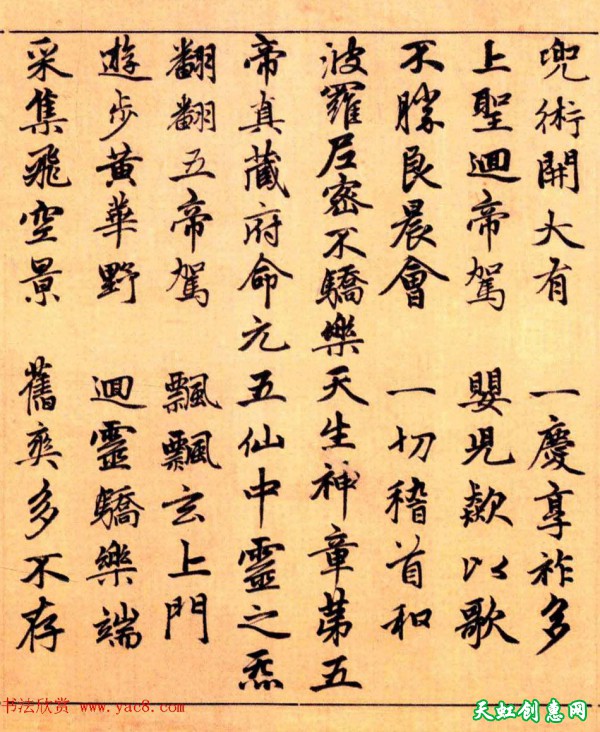 兜術開大有　一慶享祚多
上聖迴帝駕　嬰兒歘以歌
不勝良晨會　一切稽首和
波羅尼密不驕樂天生神章第五
帝真藏府命元五仙中靈之炁
翻翻五帝駕　飄飄玄上門
遊步黃華野　迴靈驕樂端
采集飛空景　舊爽多不存
书法欣赏 www.yac8.com
天虹创惠网